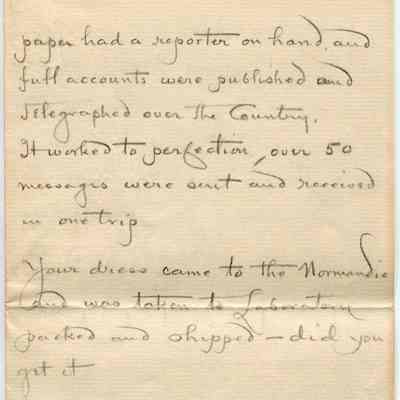 paper had a reporter on hand, and
full accounts were published and
Telegraphed over the Country.
It worked to perfection, over 50
messages were sent and received
in one trip
Your dress came to the Normandie
and was taken to Laboratory
packed and shipped — did you
get it